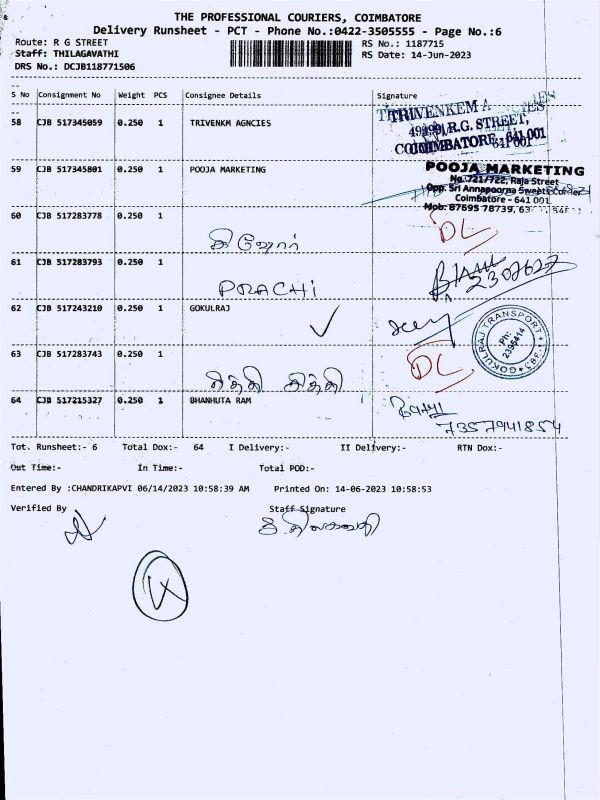 THE PROFESSIONAL COURIERS, COIMBATORE
Delivery Runsheet - PCT - Phone No.:0422-3505555 - Page No.:6
Route: R G STREET RS No.: 1187715
Staff: THILAGAVATHI RS Date: 14-Jun-2023
DRS No.: DCJB118771506
S No Consignment No Weight PCS Consignee Details Signature
58 CJB 517345059 0.250 1 TRIVENKM AGNCIES
TRIVENKEM A
R.G. STREET,
COIMBATORE 641 001
59 CJB 517345801 0.250 1 POOJA MARKETING
POOJA MARKETING
No. 721/722, Raja Street
Opp. Sri Annapoorna Sweets Corner
Coimbatore - 641 001
Mob: 87695 78739,
60 CJB 517283778 0.250 1
கிஷோர்
DL
61 CJB 517283793 0.250 1
PRACHI
2307627
62 CJB 517243210 0.250 1 GOKULRAJ
GOKULRAJ TRANSPORT CBE
Ph: 2395414
63 CJB 517283743 0.250 1
சித்தி
DL
64 CJB 517215327 0.250 1 BHANHUTA RAM
7357941854
Tot. Runsheet:- 6 Total Dox:- 64 I Delivery:- II Delivery:- RTN Dox:-
Out Time:- In Time:- Total POD:-
Entered By :CHANDRIKAPVI 06/14/2023 10:58:39 AM Printed On: 14-06-2023 10:58:53
Verified By Staff Signature